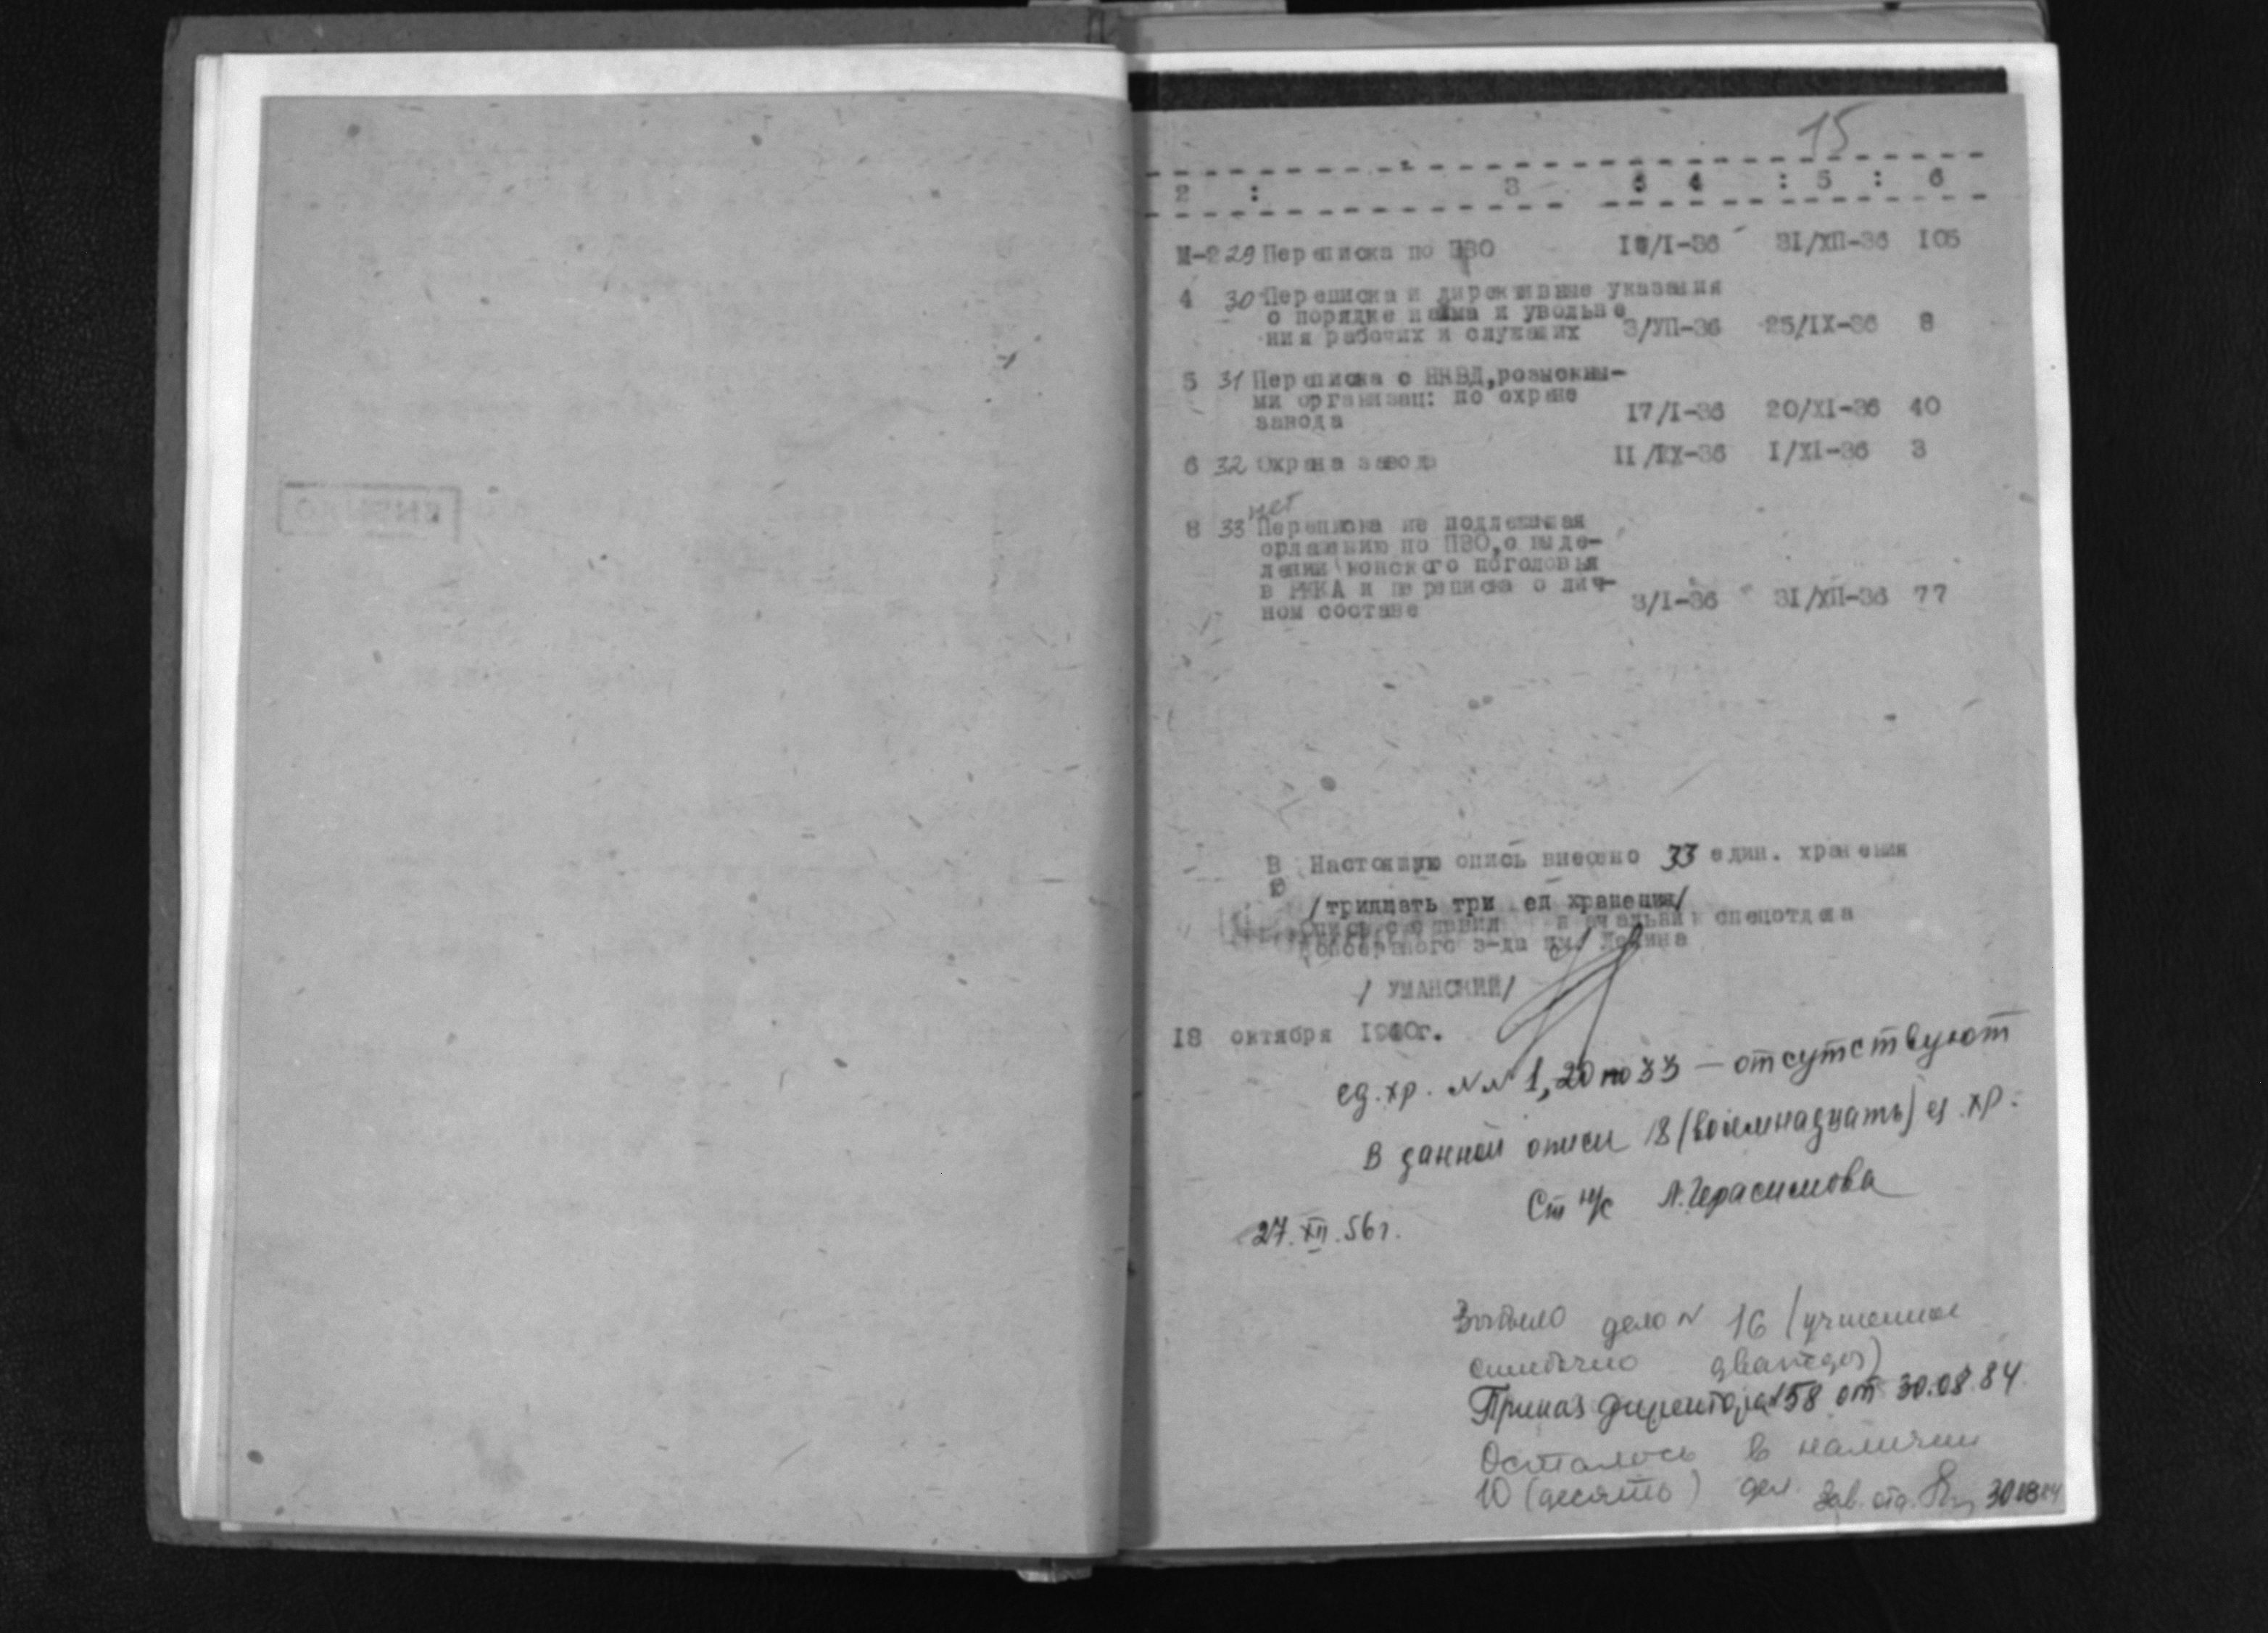 15
2 : 3 : 4 : 5 : 6
М-2 29 Переписка по ПВО 18/I-36 31/ХП-36 105
4 30 Переписка и директивные указания
о порядке найма и увольне
ния рабочих и служащих 3/УП-36 25/IX-36 8
5 31 Переписка с НКВД, розыскны-
ми организац: по охране
завода 17/I-36 20/XI-36 40
6 32 Охрана завода II/IX-36 I/XI-36 3
нет
8 33 Переписка не подлежащая
оглашению по ПВО, о выде-
лении конского поголовья
в РККА и переписка о лич-
ном составе 3/I-36 31/ХП-36 77
В Настоящую опись внесено 33 един. хранения
/тридцать три ед хранения/
Опись составил начальник спецотдела
Консервного з-да им. Ленина
/ УМАНСКИЙ/
18 октября 1940г.
ед. хр. №№ 1, 20 по 33 — отсутствуют
В данной описи 18 (восемнадцать) ед. хр.
Ст н/с Л. Герасимова
27. XII. 56 г.
Выбыло дело № 16 (учтенное
ошибочно дважды)
Приказ директора 158 от 30.08.84
Осталось в наличии
10 (десять) дел. Зав. отд. 30 08 84